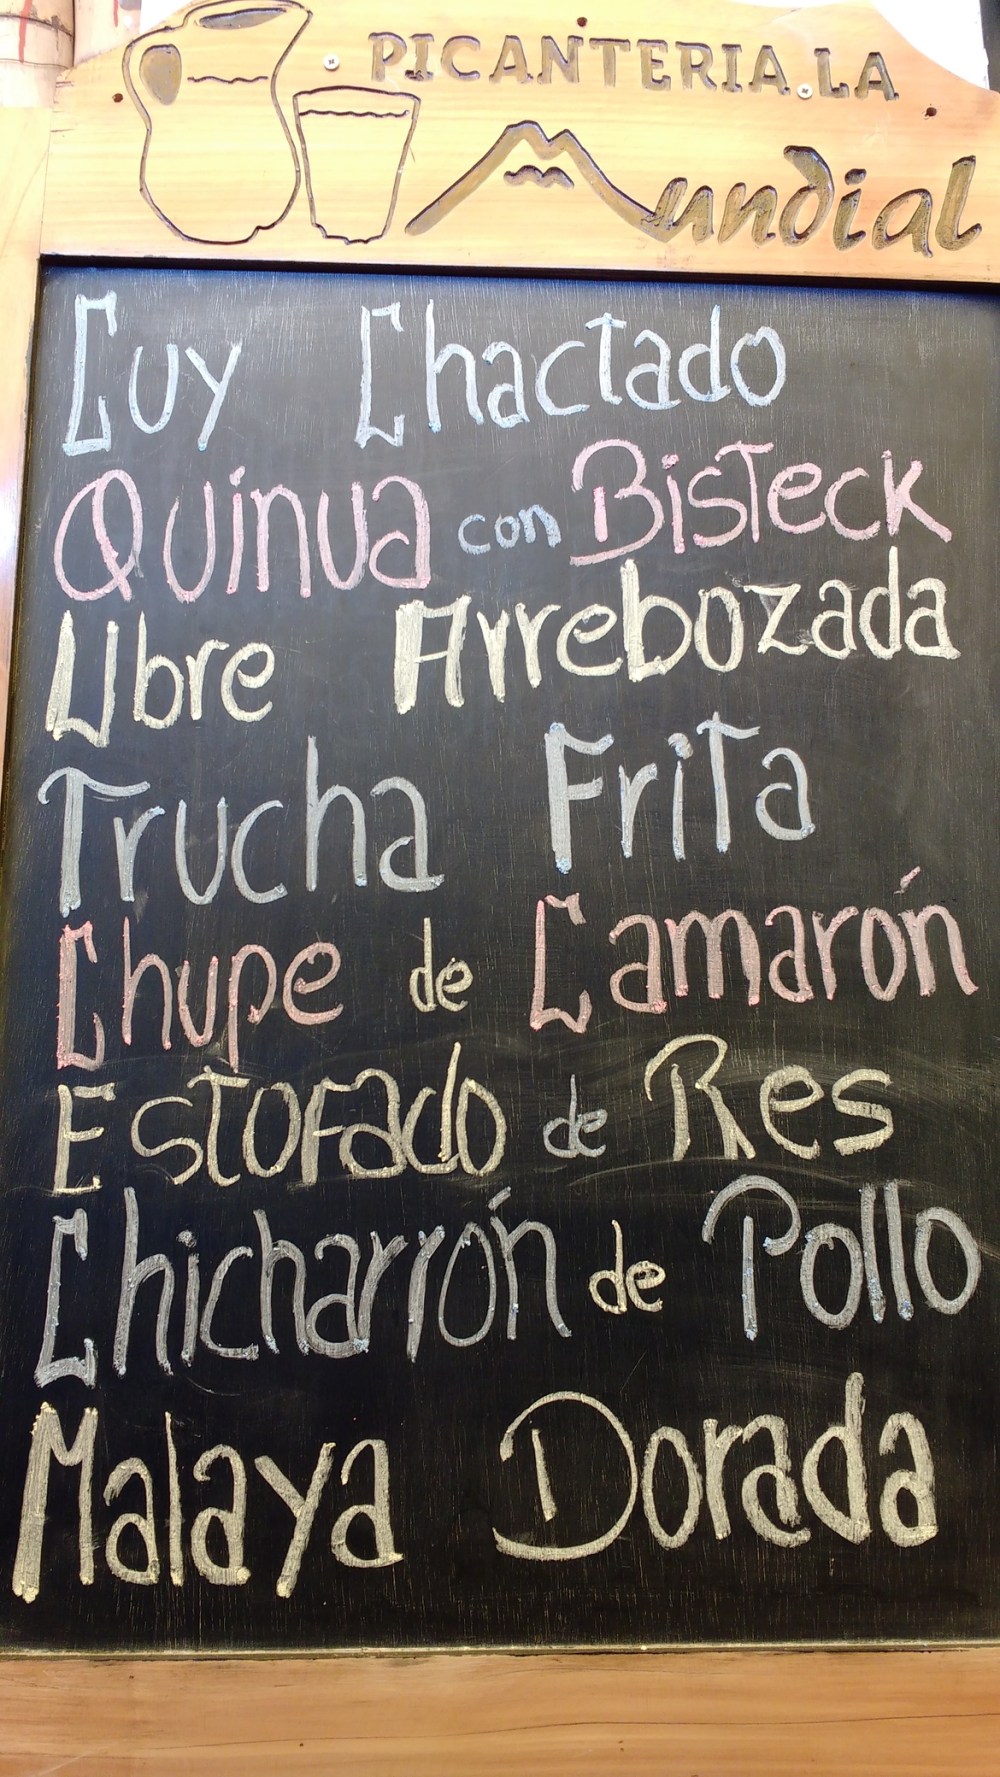 PICANTERIA LA
Mundial
Cuy Chactado
Quinua con Bisteck
Ubre Arrebozada
Trucha Frita
Chupe de Camarón
Estofado de Res
Chicharrón de Pollo
Malaya Dorada